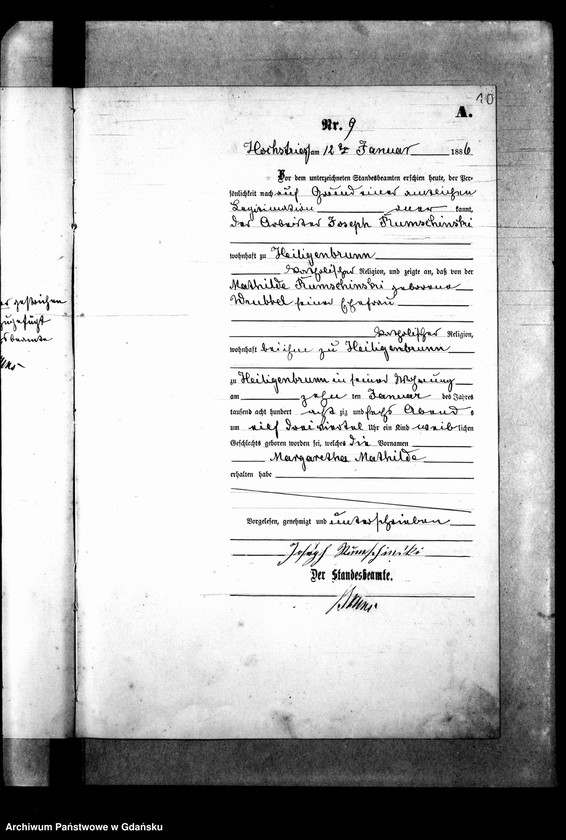 10
A.
Nr. 9
Hochstrieß am 12ten Januar 1886
Vor dem unterzeichneten Standesbeamten erschien heute, der Per-
sönlichkeit nach auf Grund einer amtlichen
Legitimation aner kannt,
der Arbeiter Joseph Rumschinski
wohnhaft zu Heiligenbrunn
katholischer Religion, und zeigte an, daß von der
Mathilde Rumschinski geborene
Wrubbel seiner Ehefrau
katholischer Religion,
wohnhaft bei ihm zu Heiligenbrunn
zu Heiligenbrunn in seiner Wohnung
am zehn ten Januar des Jahres
tausend acht hundert acht zig und sechs Abend s
um eilf dreiviertel Uhr ein Kind weib lichen
Geschlechts geboren worden sei, welches die Vornamen
Margaretha Mathilde
erhalten habe
Vorgelesen, genehmigt und unterschrieben
Joseph Rumschinski
Der Standesbeamte.
er gestrichen
zugefügt
sbeamte
Archiwum Państwowe w Gdańsku